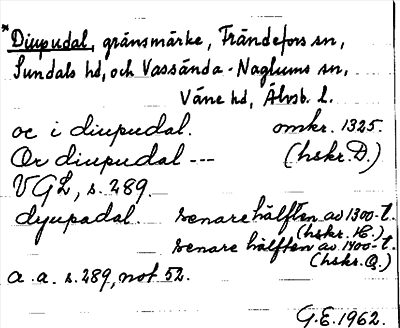 *Diupudal, gränsmärke, Frändefors sn,
Sundals hd, och Vassända-Naglums sn,
Väne hd, Älvsb. l.
oc i diupudal. omkr. 1325.
Or diupudal --- (hskr. D.)
VGL, s. 289.
dyupadal. senare hälften av 1300-t.
(hskr. H.)
senare hälften av 1400-t.
(hskr. Q.)
a. a. s. 289, not 52.
G.E. 1962.